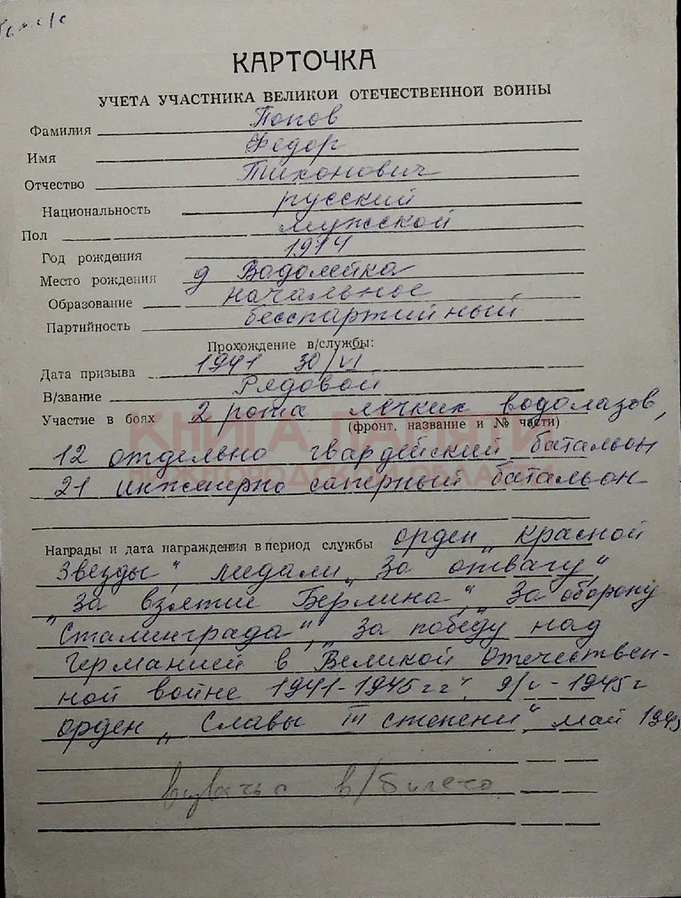 КАРТОЧКА
УЧЕТА УЧАСТНИКА ВЕЛИКОЙ ОТЕЧЕСТВЕННОЙ ВОЙНЫ
Фамилия Попов
Имя Федор
Отчество Тихонович
Национальность русский
Пол мужской
Год рождения 1914
Место рождения д Водолейка
Образование начальное
Партийность бесспартийный
Прохождение в/службы:
Дата призыва 1941 30/VI
В/звание Рядовой
Участие в боях 2 рота легких водолазов,
(фронт, название и № части)
КНИГА ПАМЯТИ
12 отдельно гвардейский батальон
НОВГОРОДСКОЙ ОБЛАСТИ
21 инженерно саперный батальон
Награды и дата награждения в период службы орден „Красной
Звезды", медали „За отвагу",
„За взятие Берлина", „За оборону
Сталинграда", „За победу над
Германией в Великой Отечествен-
ной войне 1941-1945гг". 9/V-1945г
орден „Славы III степени", май 1945
в/билета